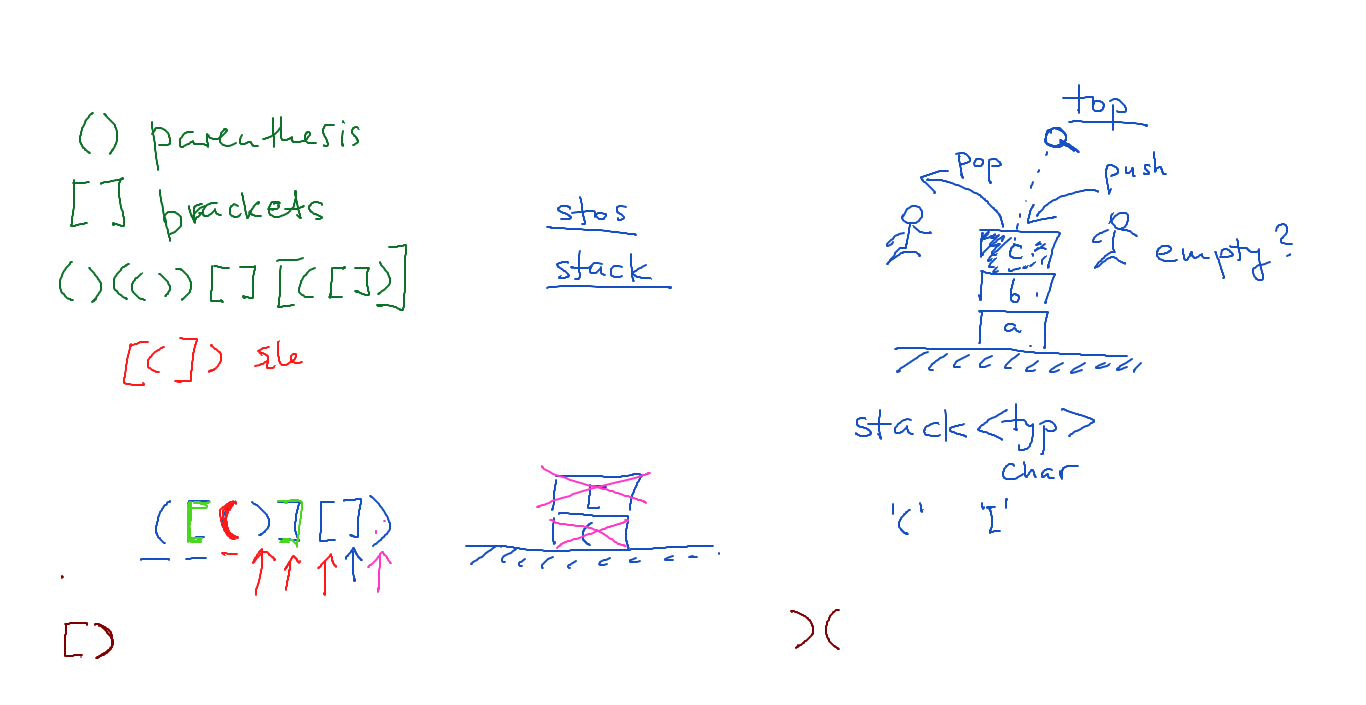 () parenthesis
[] brackets
()(())[][([])]
[(]) źle
stos
stack
top
pop
push
empty?
c
b
a
stack<typ>
char
'(' '['
([()][])
[
(
[)
)(